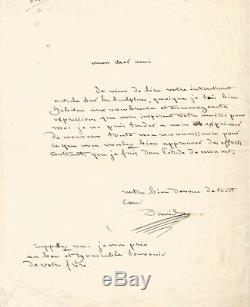 mon cher ami
Je viens de lire votre intéressant
article sur la sculpture, quoique je sois bien
habitué aux nombreuses et encourageantes
expressions que vous inspirent votre amitié pour
moi je ne puis tarder à vous exprimer
de nouveau toute ma reconnaissance pour
ce que vous voulez bien approuver des efforts
que je fais dans l'étude de mon art.
votre bien dévoué de tout
cœur
David
Rappelez moi je vous prie
au bon et honorable souvenir
de votre frère